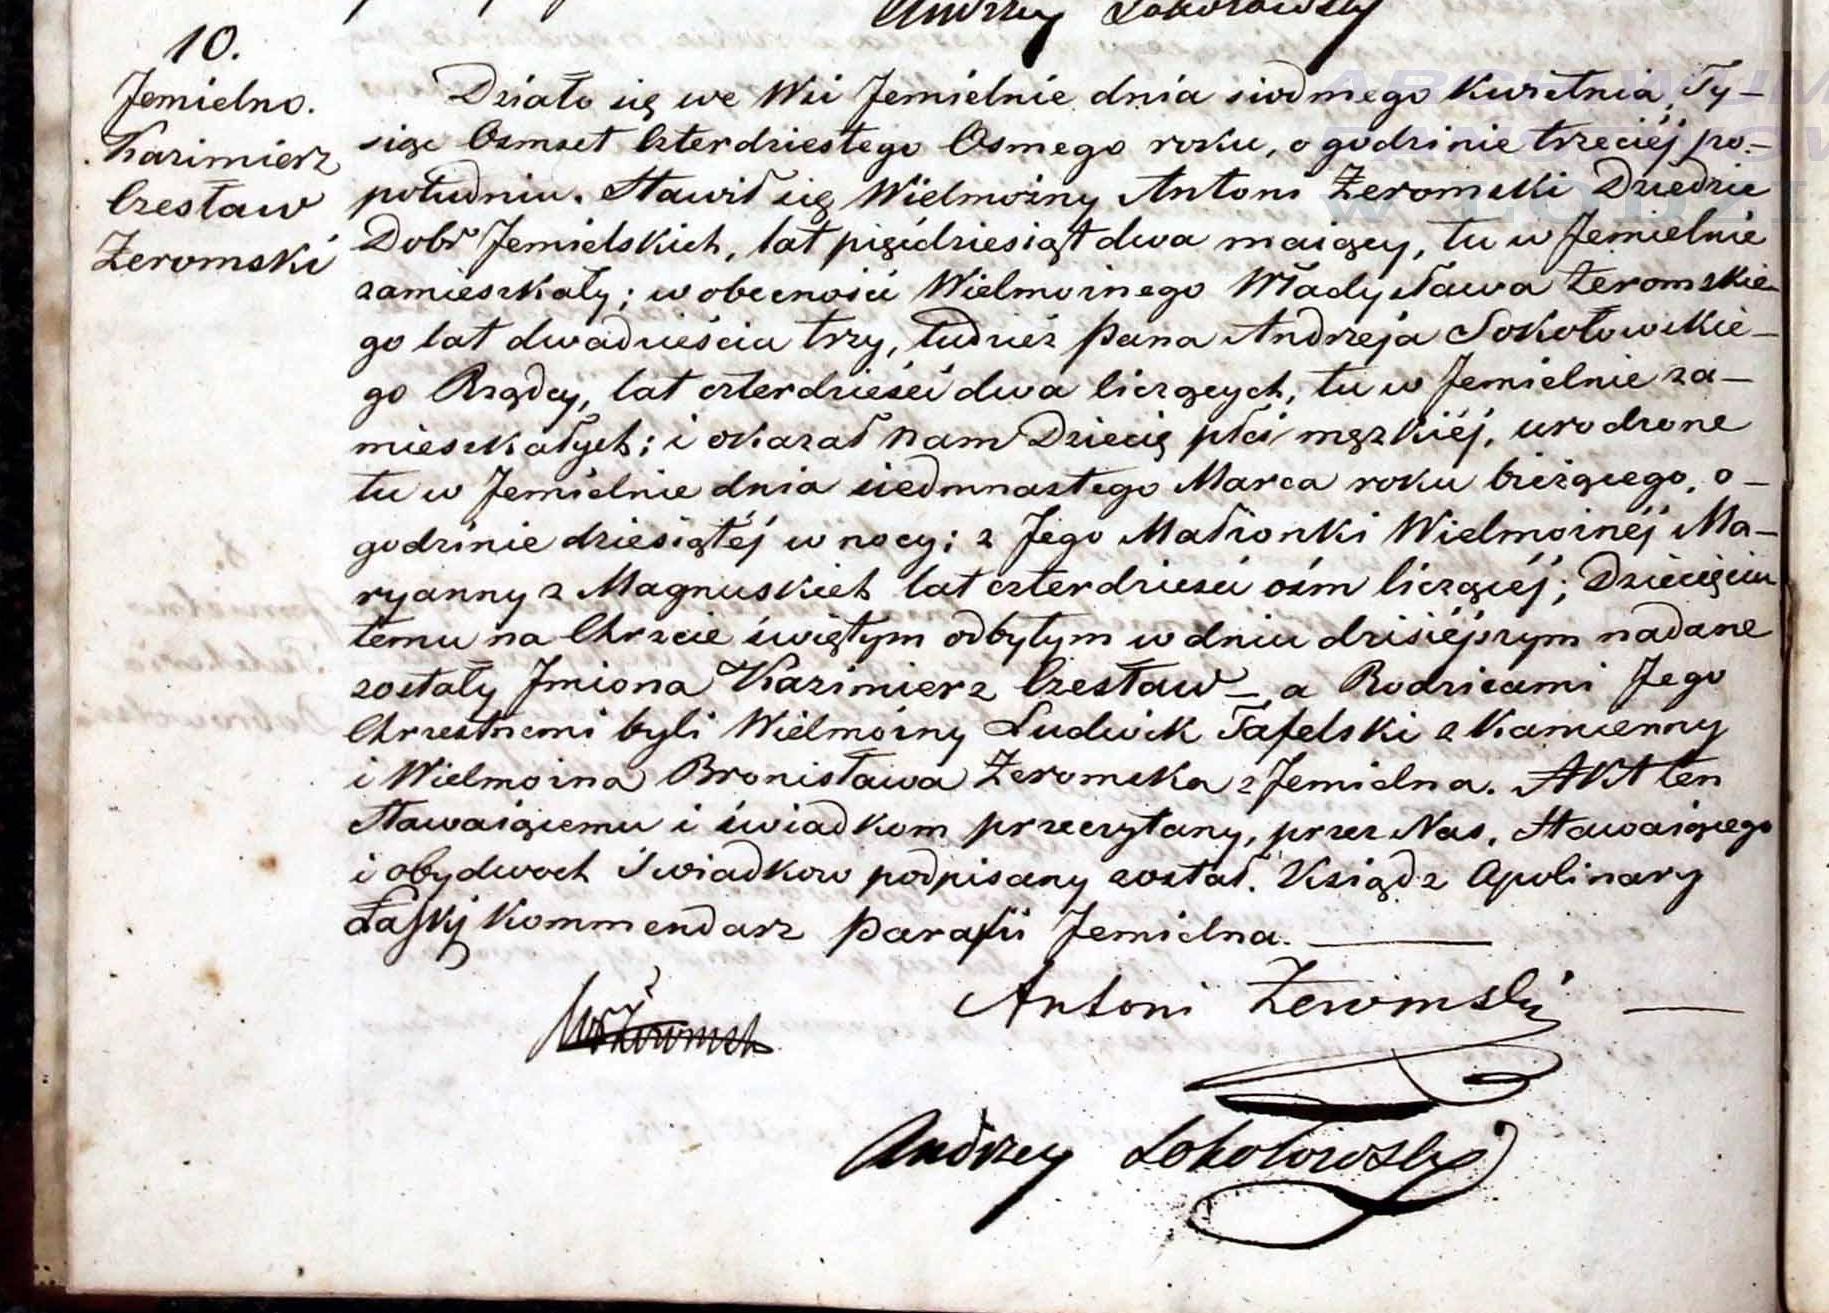 Andrzey Sokołowsky
10.
Jemielno.
Kazimierz
Czesław
Żeromski
Działo się we Wsi Jemielnie dnia siodmego Kwietnia, Ty-
siąc Osmset Czterdziestego Osmego roku, o godzinie trzeciéj po-
południu. Stawił się Wielmożny Antoni Żeromski Dziedzic
Dobr Jemielskich, lat pięćdziesiąt dwa maiący, tu w Jemielnie
zamieszkały; w obecności Wielmożnego Władysława Żeromskie-
go lat dwadzieścia trzy, tudzież Pana Andrzeja Sokołowskie-
go Rządcy, lat czterdzieści dwa liczących, tu w Jemielnie za-
mieszkałych; i okazał nam Dziecię płci męzkiéj, urodzone
tu w Jemielnie dnia siedmnastego Marca roku bieżącego, o-
godzinie dziesiątéj w nocy; z Jego Małżonki Wielmożnéj Ma-
ryanny z Magnuskich lat czterdzieści ośm liczącéj; Dziecięciu
temu na Chrzcie świętym odbytym w dniu dzisiéjszym nadane
zostały Jmiona Kazimierz Czesław - a Rodzicami Jego
Chrzestnemi byli Wielmożny Ludwik Tafelski z Kamienny
i Wielmożna Bronisława Żeromska z Jemielna. Akt ten
stawaiącemu i świadkom przeczytany, przez Nas, stawaiącego
i obydwoch świadkow podpisany został. Ksiądz Apolinary
Łaski Kommendarz Parafii Jemielna.
Antoni Żeromski
Wł Żeromski
Andrzey Sokołowsky
ARCHIWUM
PAŃSTWOW
W ŁODZI